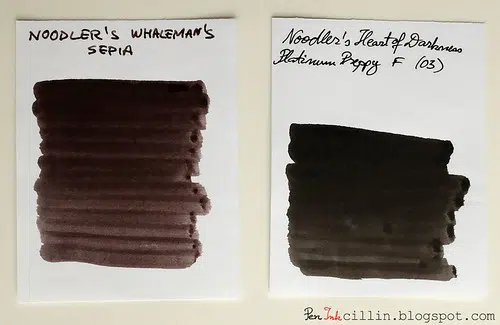 NOODLER'S WHALEMAN'S
SEPIA
Noodler's Heart of Darkness
Platinum Preppy F (03)
Pen Inkcillin.blogspot.com